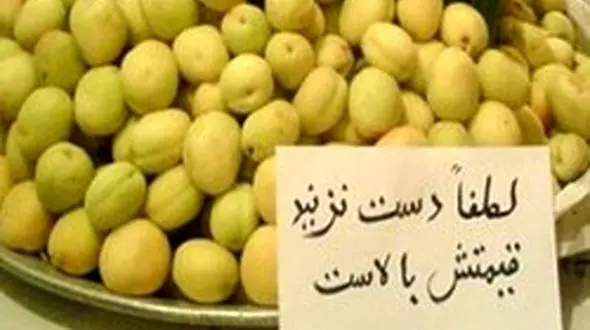 لطفاً دست نزنید
قیمتش بالاست